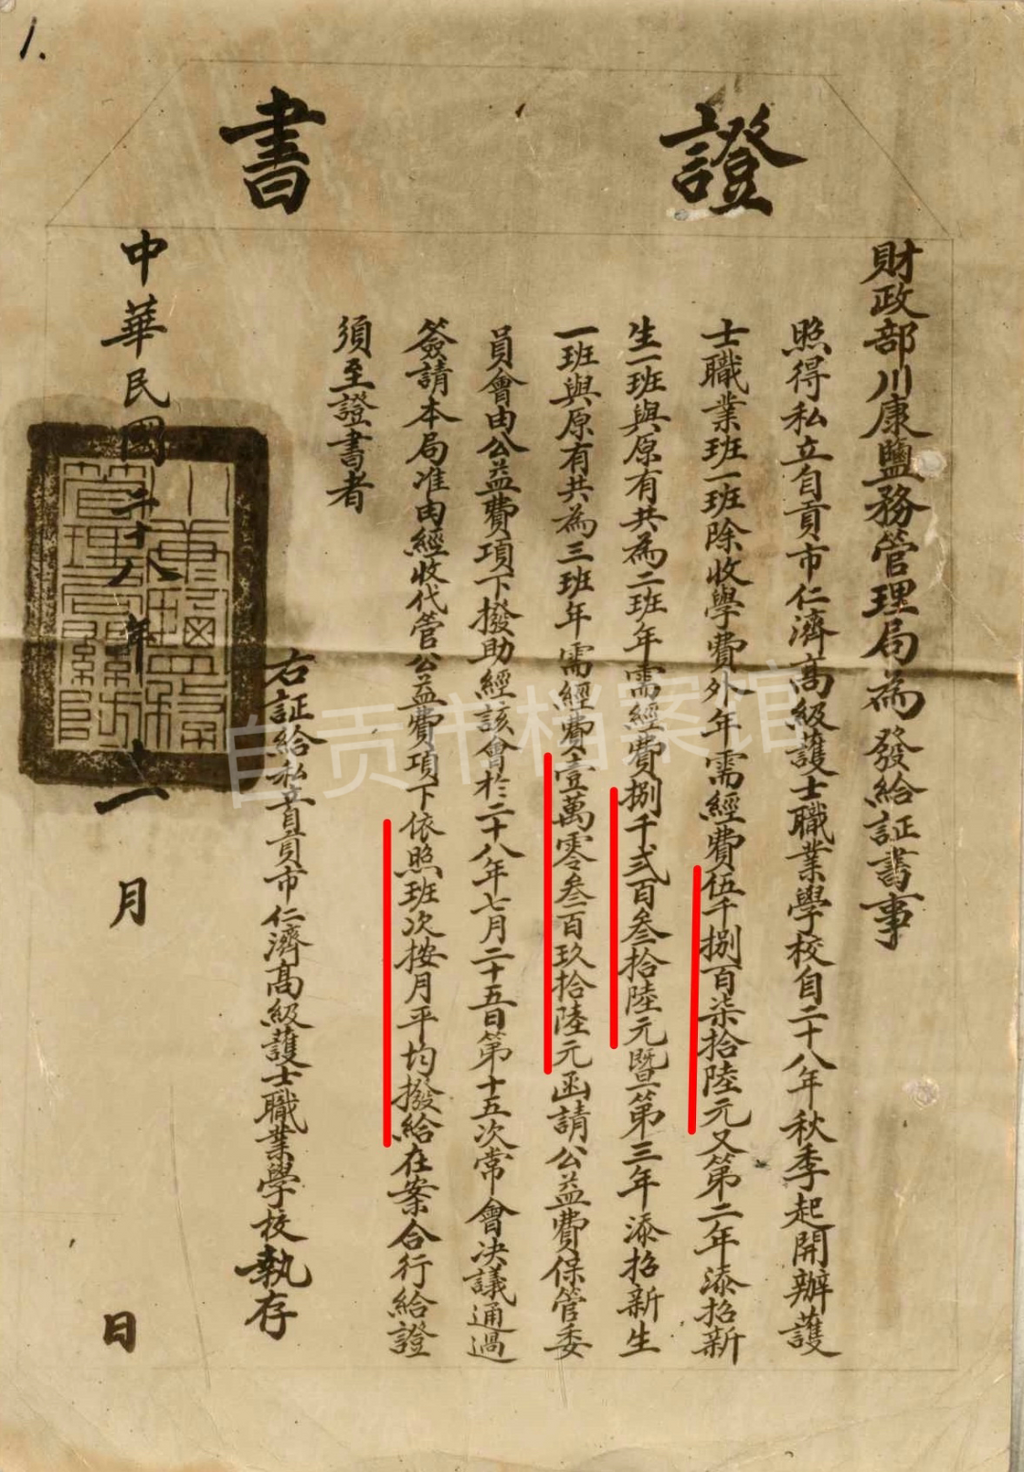 1.
證書
財政部川康鹽務管理局為發給証書事
照得私立自貢市仁濟高級護士職業學校自二十八年秋季起開辦護
士職業班一班除收學費外年需經費伍千捌百柒拾陸元又第二年添招新
生一班與原有共為二班年需經費捌千弍百叁拾陸元暨第三年添招新生
一班與原有共為三班年需經費壹萬零叁百玖拾陸元函請公益費保管委
員會由公益費項下撥助經該會於二十八年七月二十五日第十五次常會決議通過
簽請本局准由經收代管公益費項下依照班次按月平均撥給在案合行給證
須至證書者
右証給私立自貢市仁濟高級護士職業學校執存
中華民國二十八年十一月 日
川康鹽務管理局關防
自贡市档案馆